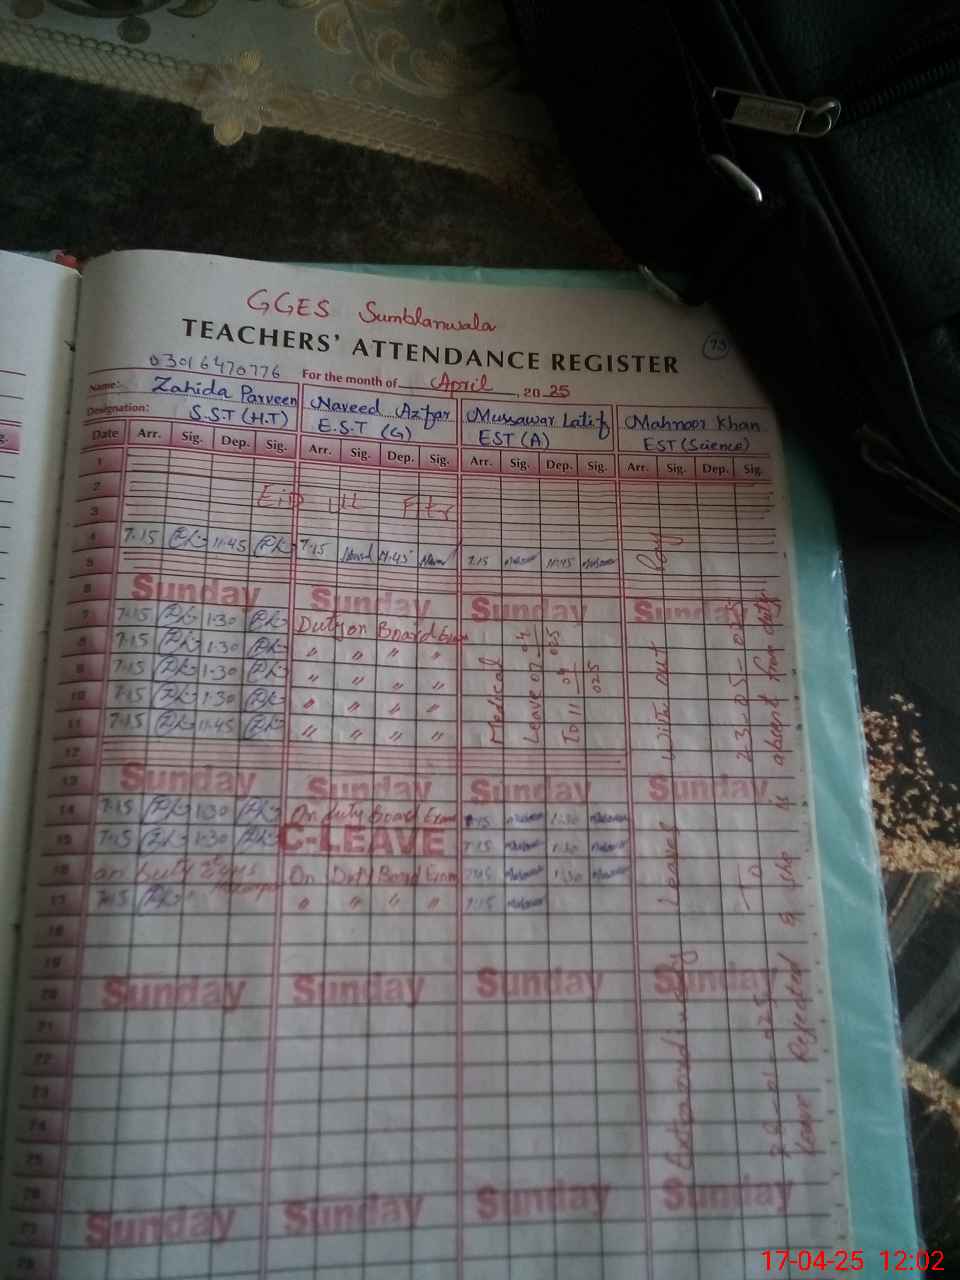 GGES Sumblanwala
TEACHERS' ATTENDANCE REGISTER
73
03016470776
For the month of April, 2025
Name: Zahida Parveen Naveed Azhar Mussawar Latif Mahnoor Khan
Designation: S.S.T (H.T) E.S.T (G) EST (A) EST (Science)
Date Arr. Sig. Dep. Sig. Arr. Sig. Dep. Sig. Arr. Sig. Dep. Sig. Arr. Sig. Dep. Sig.
1
2
Eid Ul Fitr
3
4 7.15 11:45 7.15 11:45 7.15 11:45
5
6 Sunday Sunday Sunday Sunday
7 7.15 1.30 Duty on Board Exam
8 7.15 1.30 " " " "
9 7.15 1.30 " " " "
10 7.15 1.30 " " " "
11 7.15 11.45 " " " "
Medical
Leave 07-04-025
To 11-04-025
12
13 Sunday Sunday Sunday Sunday
14 7.15 1.30 On duty Board Exam 7.15 1:30
15 7.15 1.30 C-LEAVE 7:15 1:30
16 on Duty On Duty Board Exam 1:30
17 7.15 " " " " 7:15
18
19
20 Sunday Sunday Sunday Sunday
21
22
23
24
25
26
27 Sunday Sunday Sunday Sunday
Extraordinary Leave without Pay
To 23-05-025
Leave Rejected & she is absent from duty
17-04-25 12:02